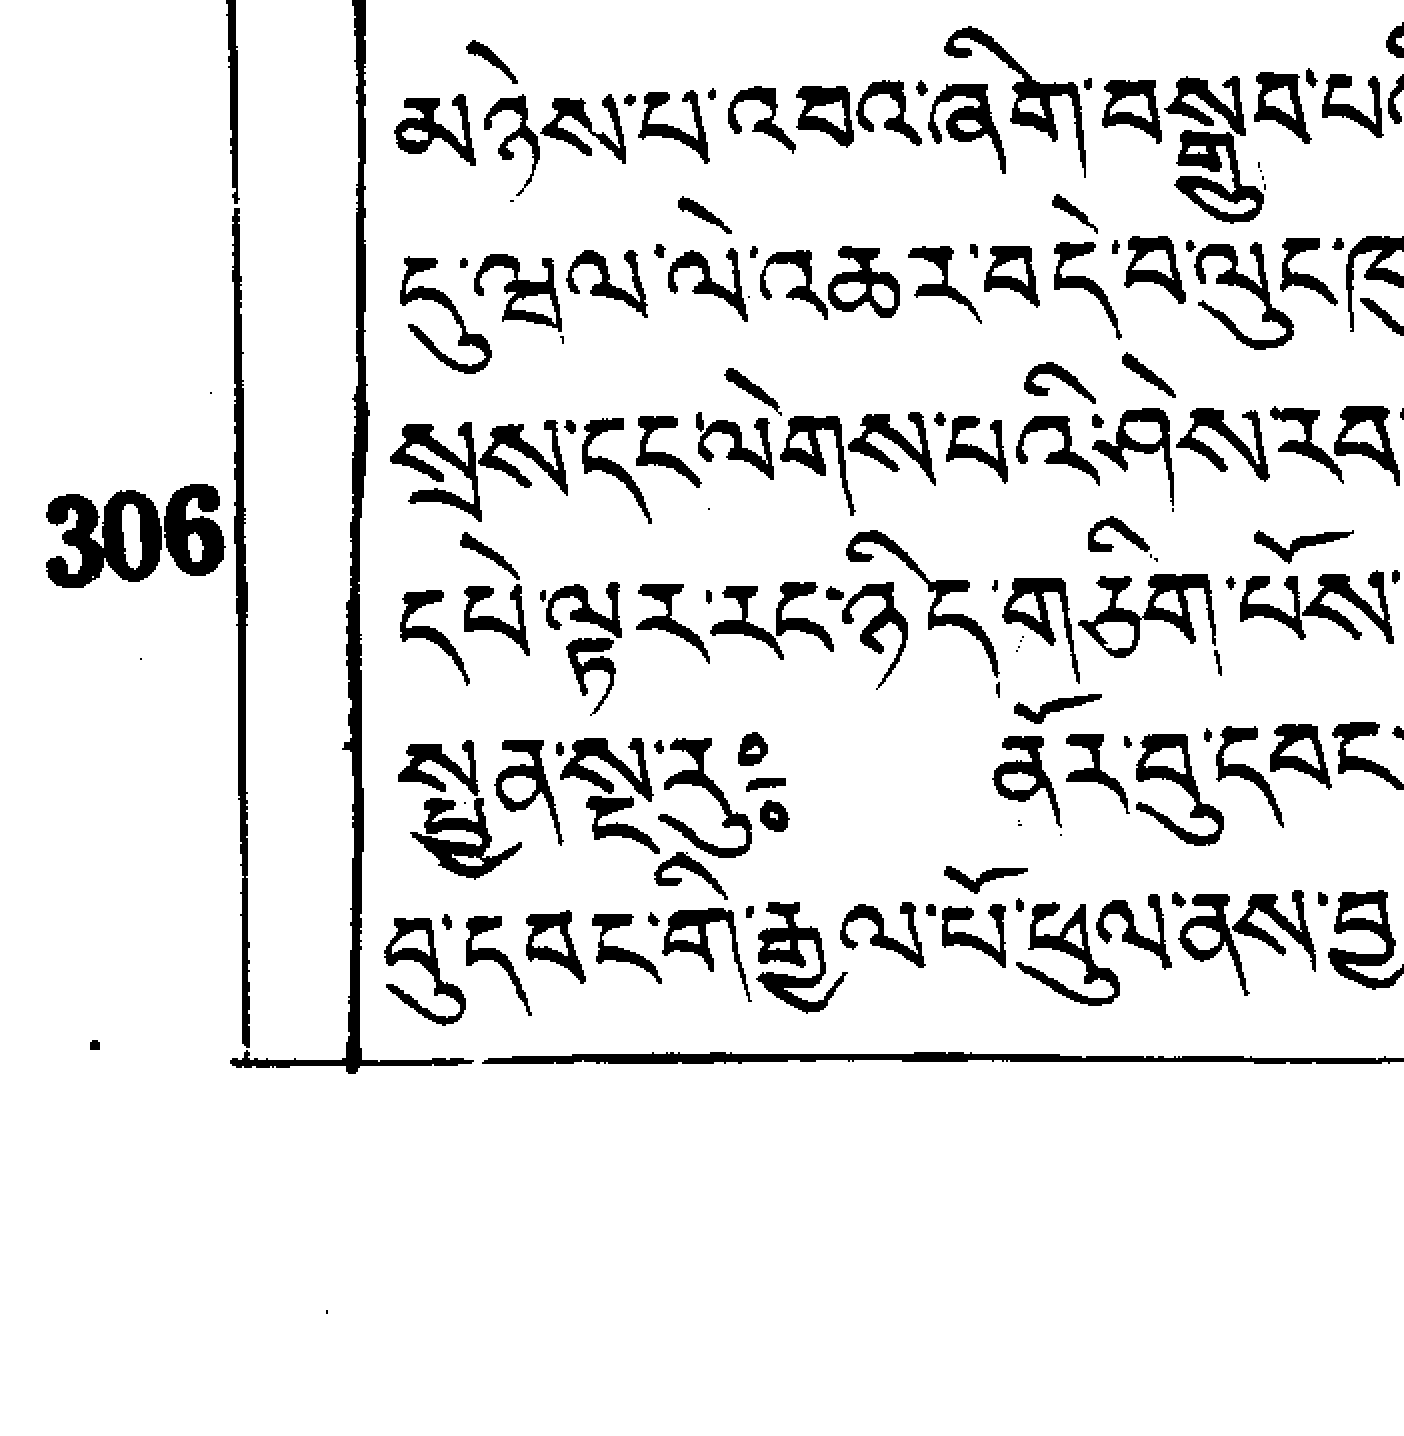 མཉེས་པ་འབའ་ཞིག་བསྒྲུབ་པ
དུ་ལྷལ་ལེ་འཆར་བ་དེ་བལུང་
སྲས་དང་ལེགས་པའི་ཤེས་རབ་
306
དཔེ་ལྟར་རང་ཉིད་གཅིག་པོས་
སྤྱན་སྔ་རུ༔ ནོར་བུ་དབང་
བུ་དབང་གི་རྒྱལ་པོ་ཕུལ་ནས་